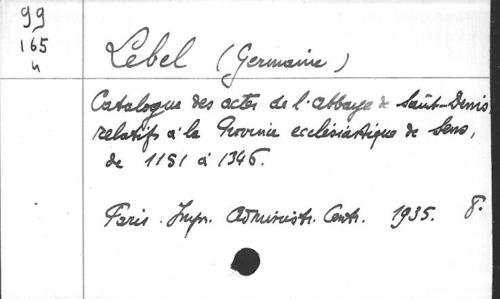 99
165
4
Lebel (Germaine)
Catalogue des actes de l'abbaye de Saint-Denis,
relatifs à la Province ecclésiastique de Sens,
de 1151 à 1346.
Paris. Impr. Administr. Centr. 1935. 8°.